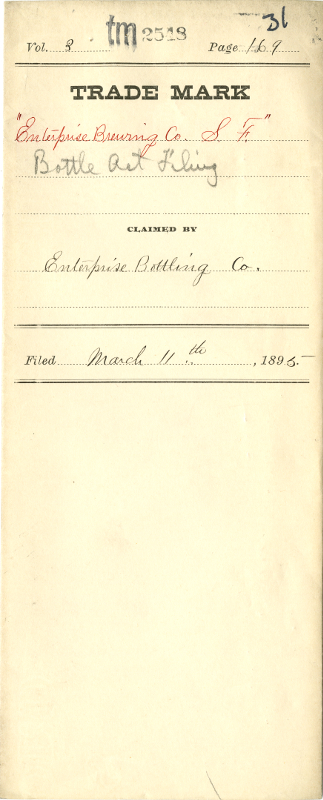 31
tm 2548
Vol. 3 Page 169
TRADE MARK
"Enterprise Brewing Co. S. F."
Bottle Act Filing
CLAIMED BY
Enterprise Bottling Co.
Filed March 11th, 1895